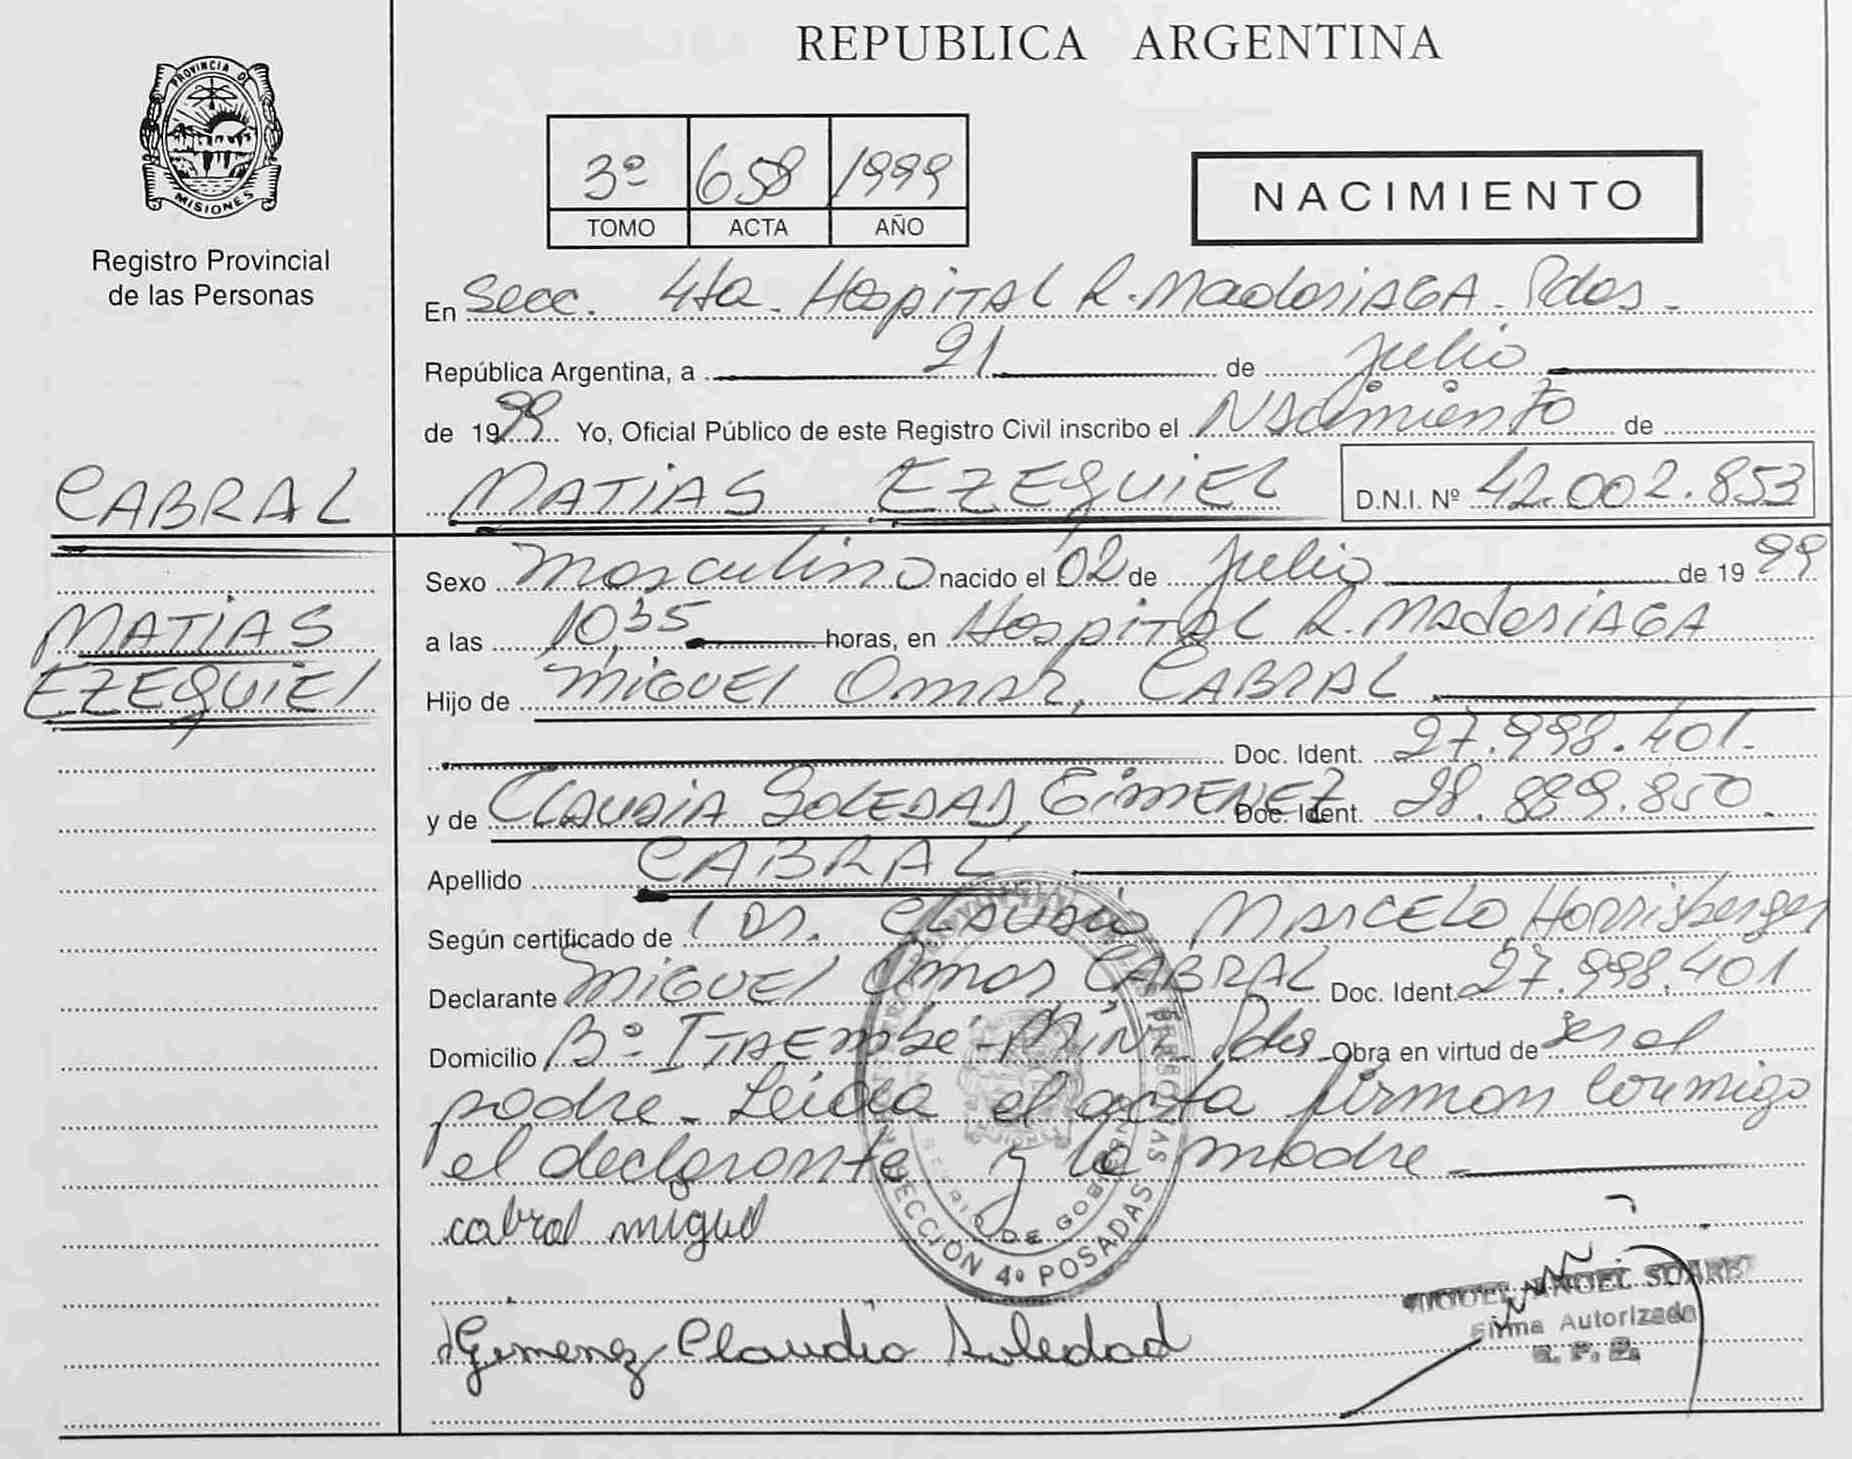 REPUBLICA ARGENTINA
PROVINCIA DE
MISIONES
Registro Provincial
de las Personas
3º 658 1999
TOMO ACTA AÑO
NACIMIENTO
En Secc. 4ta. Hospital R. Madariaga. Pdas.
República Argentina, a 21 de julio
de 1999 Yo, Oficial Público de este Registro Civil inscribo el Nacimiento de
CABRAL
MATIAS EZEQUIEL D.N.I. Nº 42.002.853
Sexo masculino nacido el 02 de julio de 1999
MATIAS
EZEQUIEL
a las 10,35 horas, en Hospital R. Madariaga
Hijo de Miguel Omar, CABRAL
Doc. Ident. 27.998.401.
y de Claudia Soledad, Gimenez Doc. Ident. 28.889.850.
Apellido CABRAL
Según certificado de Dr. Claudio Marcelo Horrisberger
Declarante Miguel Omar CABRAL Doc. Ident. 27.998.401
Domicilio Bº Itaembé-Miní Pdas Obra en virtud de ser el
padre. Leída el acta firman conmigo
el declarante y la madre
cabral miguel
SECCIÓN 4º POSADAS
Gimenez Claudia Soledad
MIGUEL ANGEL SUAREZ
Firma Autorizada
R. P. P.